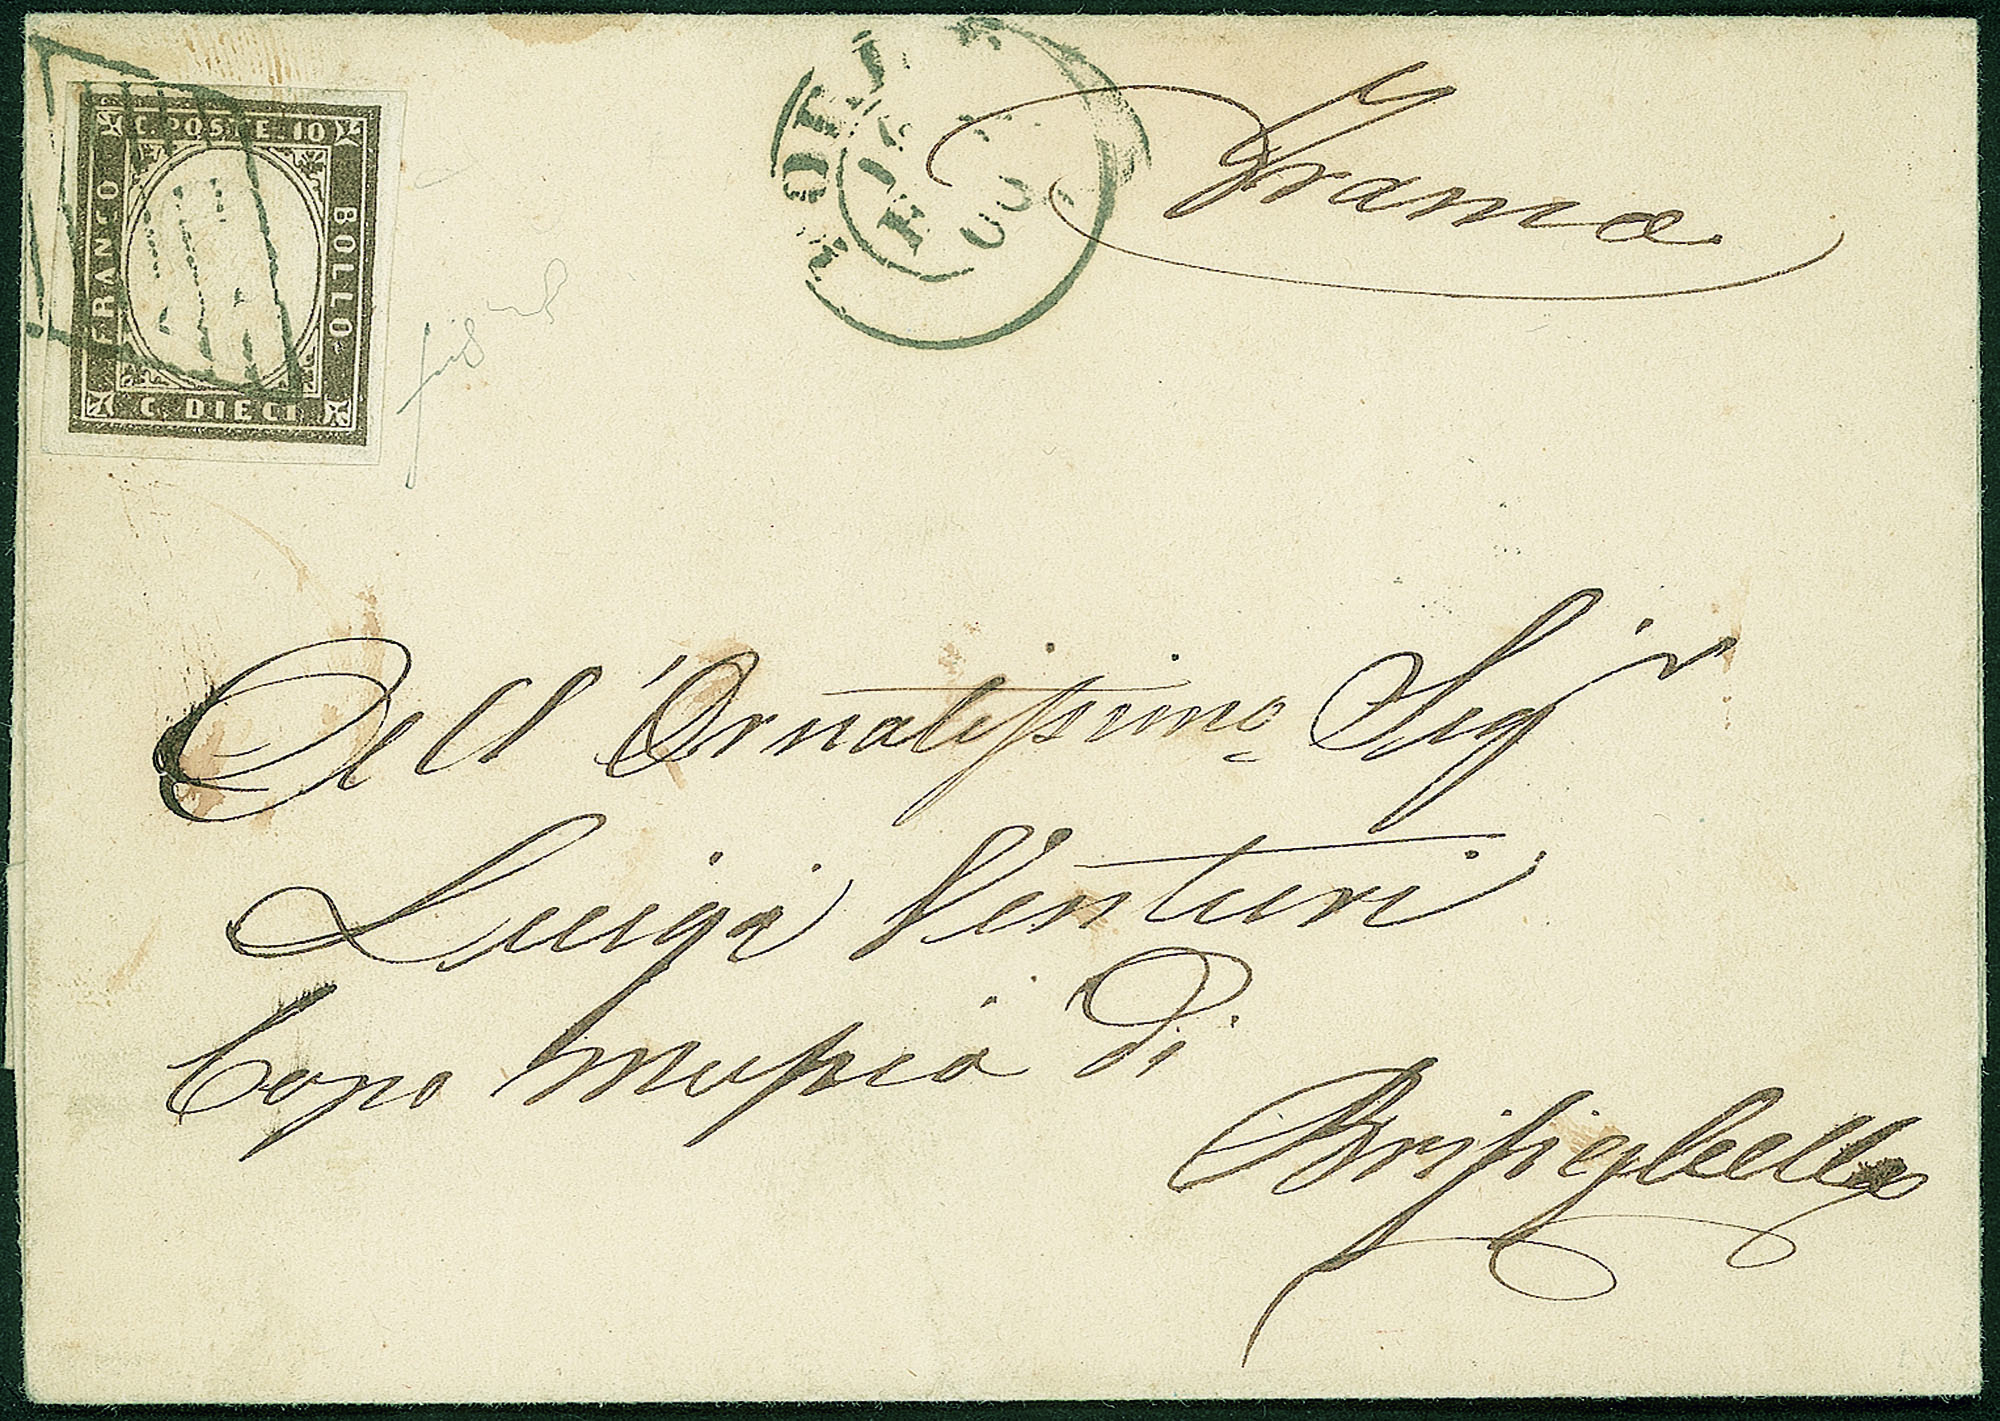 C. POSTE 10
FRANCO
BOLLO
C. DIECI
Franca
Dell'Ornatissimo Sigr
Luigi Venturi
Capo Musica di
Brisighella